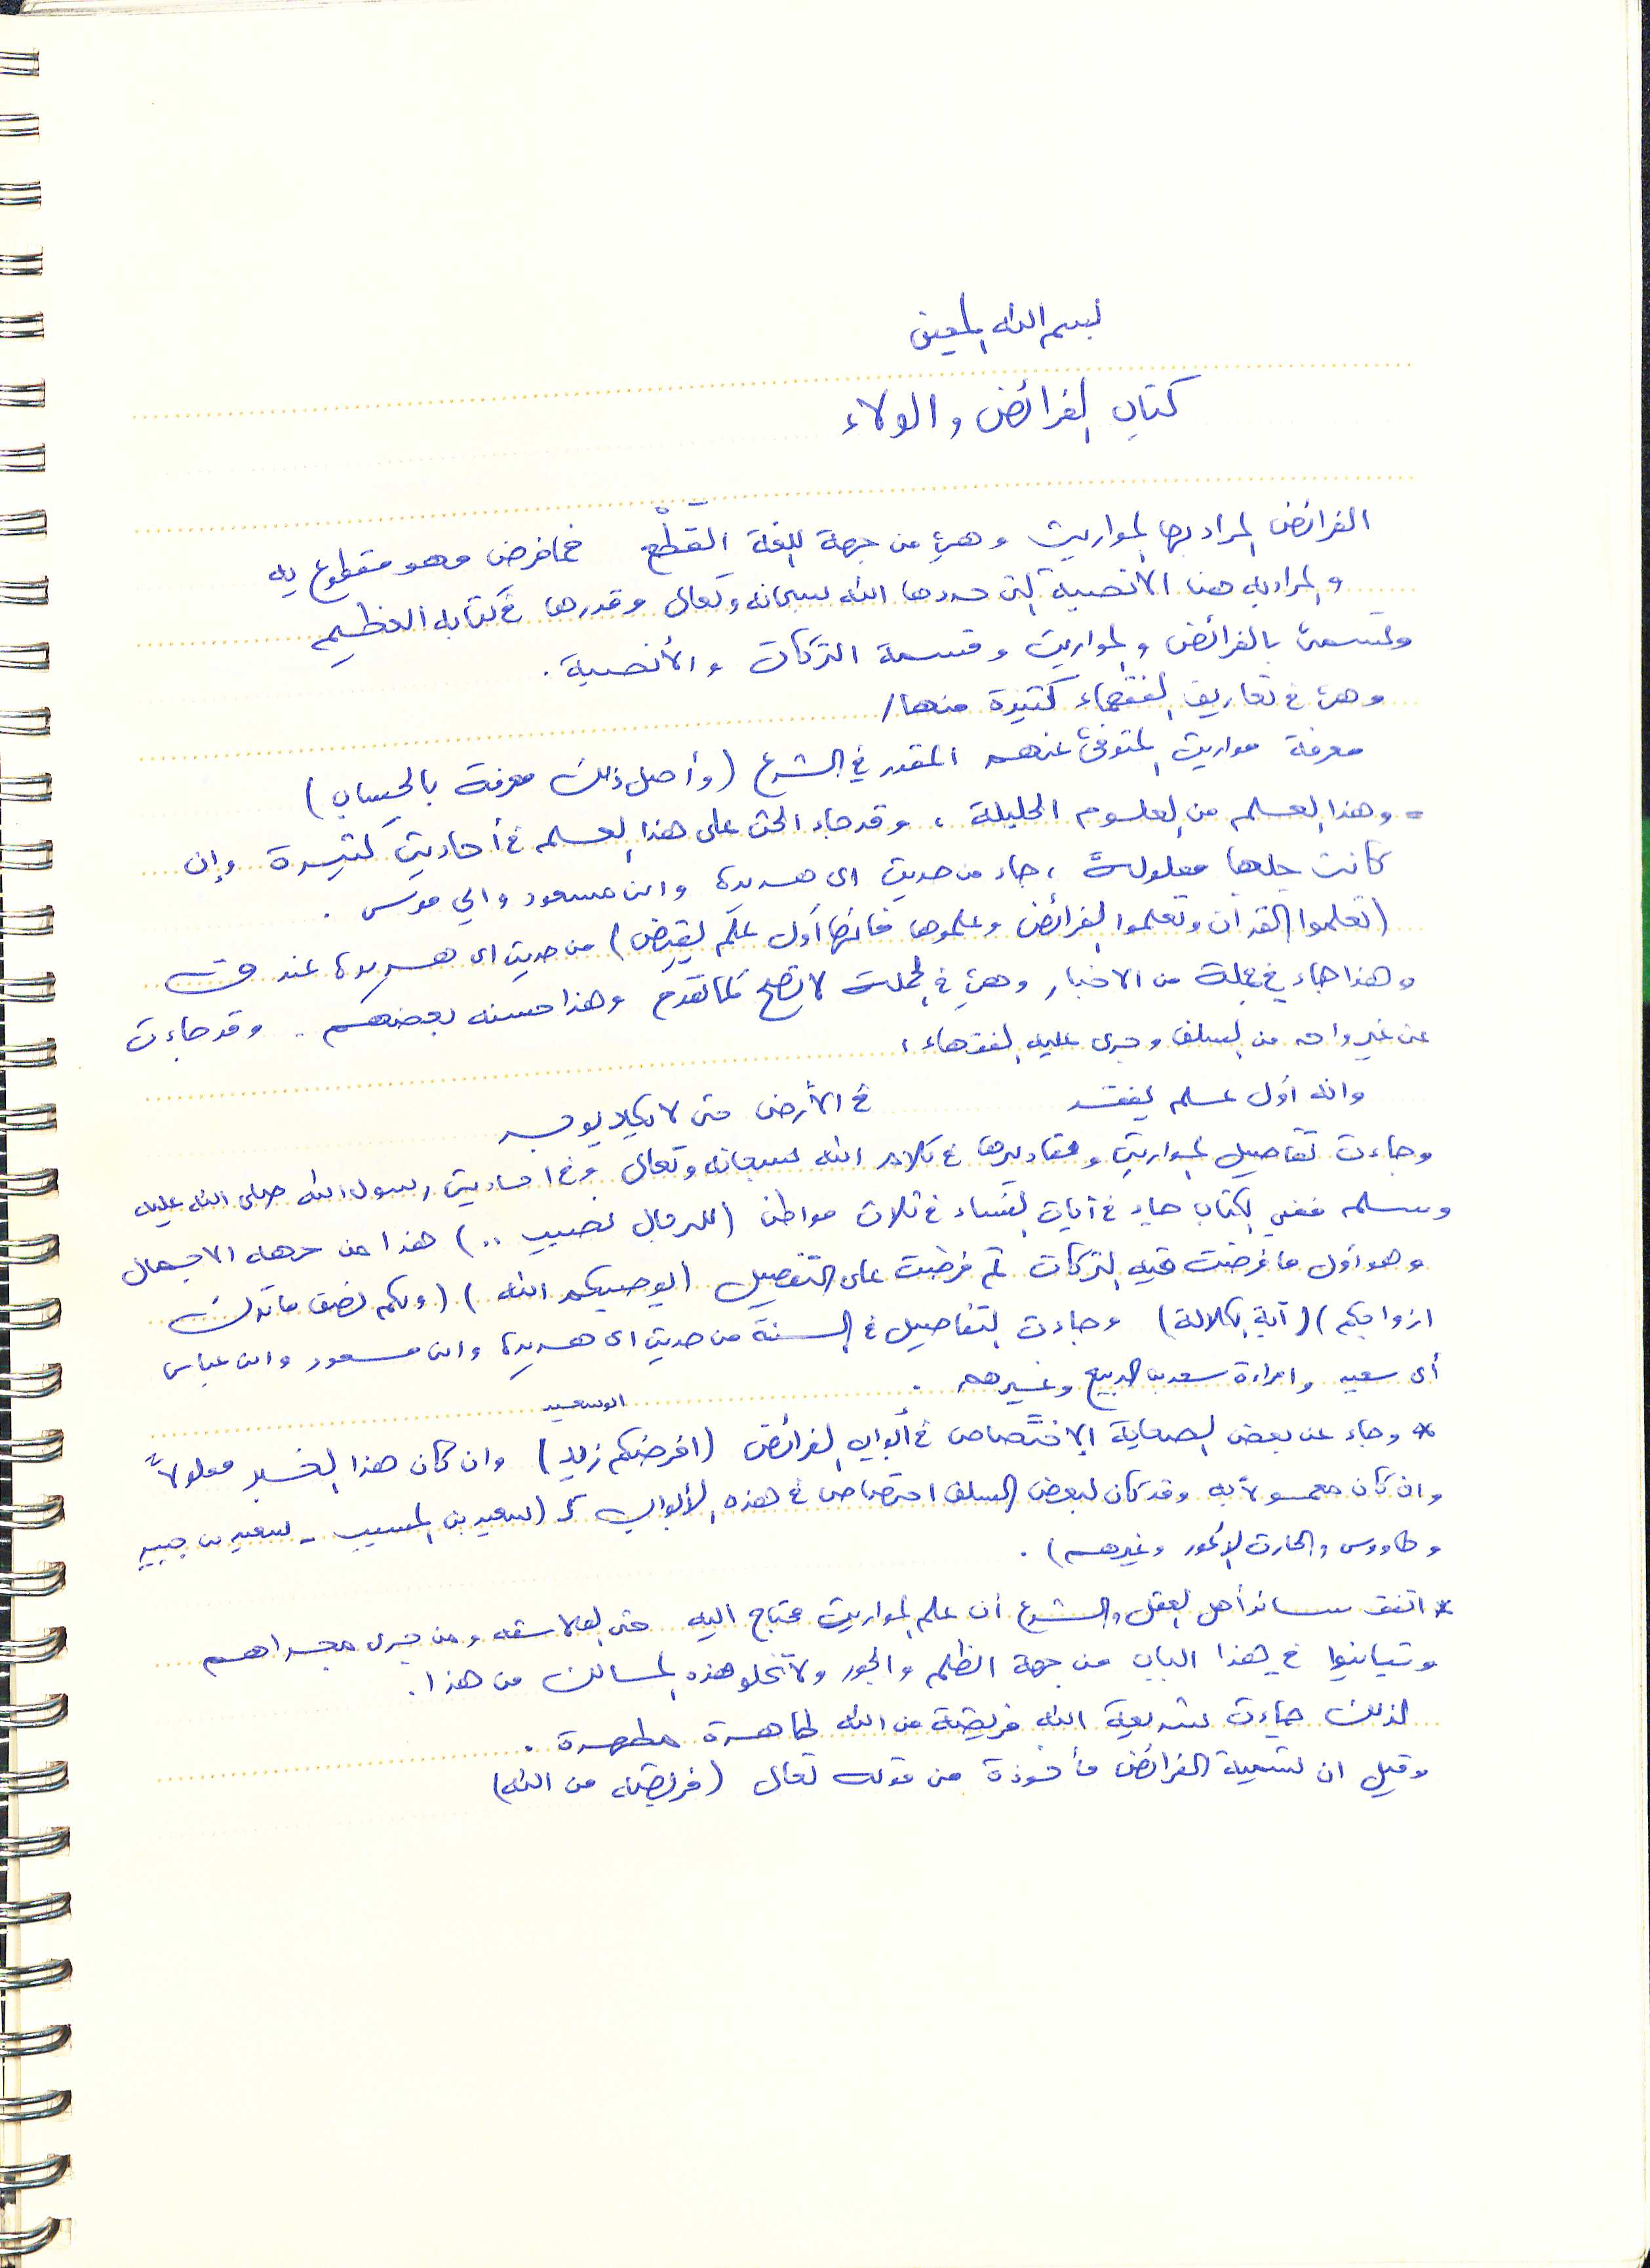 بسم الله المعين
كتاب الفرائض والولاء
الفرائض المراد بها المواريث وهي من جهة اللغة القَطْع فما فرض فهو مقطوع به
والمراد به هنا الأنصبة التي حددها الله سبحانه وتعالى وقدرها في كتابه العظيم
وتسمى بالفرائض والمواريث وقسمة التركات والأنصبة .
وهي في تعاريف الفقهاء كثيرة منها /
معرفة مواريث المتوفى عنهم المقدر في الشرع (وأصل ذلك معرفة بالحساب)
= وهذا العلم من العلوم الجليلة ، وقد جاء الحث على هذا العلم في أحاديث كثيرة وإن
كانت جلها معلولة ، جاء من حديث ابي هريرة وابن مسعود وابي موسى .
(تعلموا القرآن وتعلموا الفرائض وعلموها فانها أول علم يقبض) من حديث ابي هريرة عند ق ت
وهذا جاء في جملة من الاخبار وهي في الجملة لا تصح كما تقدم وهذا حسنه بعضهم . وقد جاءت
عن غير واحد من السلف وجرى عليه الفقهاء ،
وانه أول علم يفقد في الأرض حتى لا يكاد
وجاءت تفاصيل المواريث ومقاديرها في كلام الله سبحانه وتعالى وفي احاديث رسول الله صلى الله عليه
وسلم ففي الكتاب جاء في آيات النساء في ثلاث مواطن (للرجال نصيب ..) هذا من جهة الاجمال
وهو أول ما فرضت فيه التركات ثم فرضت على التفصيل (يوصيكم الله) (ولكم نصف ما ترك
ازواجكم) (آية الكلالة) وجاءت التفاصيل في السنة من حديث ابي هريرة وابن مسعود وابن عباس
أبي سعيد وامرأة سعد بن الربيع وغيرهم .
ابو سعيد
* وجاء عن بعض الصحابة الاختصاص في أبواب الفرائض (افرضكم زيد) وان كان هذا الخبر معلولاً
وان كان معمولا به وقد كان لبعض السلف اختصاص في هذه الأبواب كـ (سعيد بن المسيب - سعيد بن جبير
وطاووس والحارث الأعور وغيرهم) .
* اتفق سائر أهل العقل والشرع ان علم المواريث محتاج اليه حتى الفلاسفه ومن جرى مجراهم
وتباينوا في هذا الباب من جهة الظلم والجور ولا تخلو هذه المسالك من هذا .
لذلك جاءت شريعة الله فريضة من الله طاهرة مطهرة .
وقيل ان تسمية الفرائض مأخوذة من قوله تعالى (فريضة من الله)